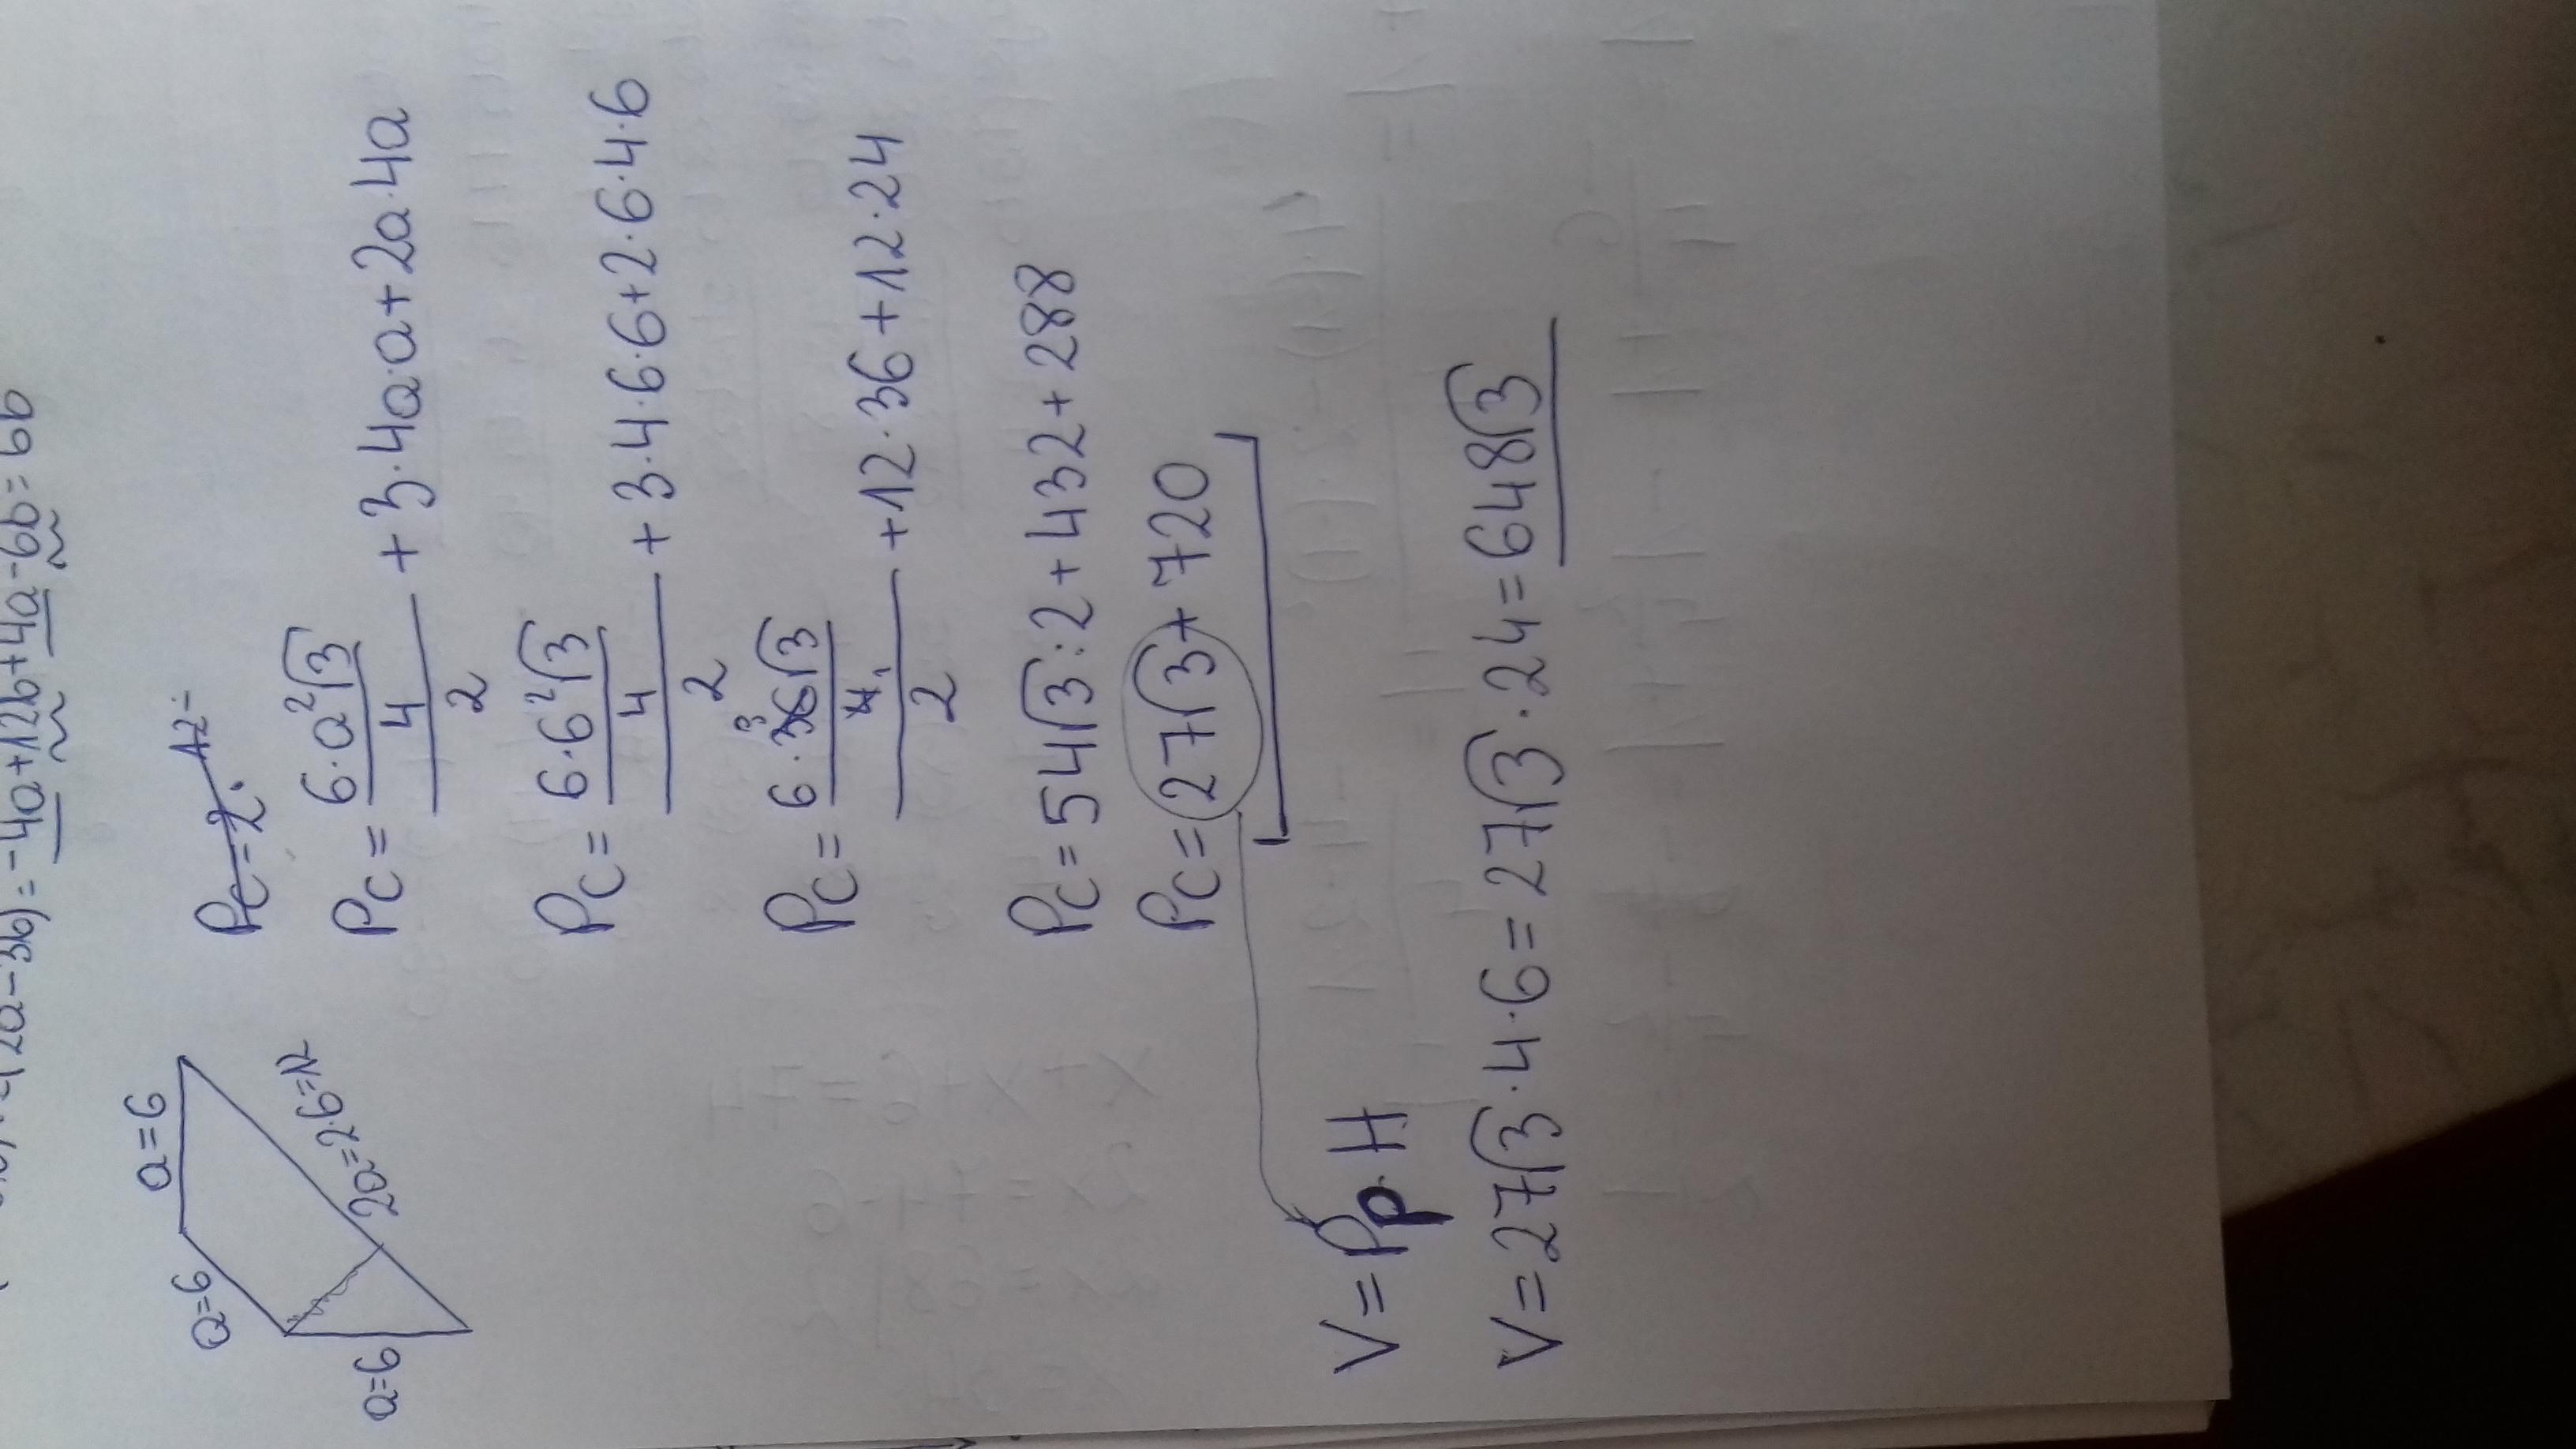 2a-3b)=-4a+12b+4a-6b=6b
a=6
a=6
a=6
2a=2·6=12
Pc=2·
Pc=\frac{\frac{6·a²√3}{4}}{2}+3·4a·a+2a·4a
Pc=\frac{\frac{6·6²√3}{4}}{2}+3·4·6·6+2·6·4·6
Pc=\frac{\frac{6·36√3}{4}}{2}+12·36+12·24
Pc=54√3:2+432+288
Pc=27√3+720
V=Pp·H
V=27√3·4·6=27√3·24=648√3